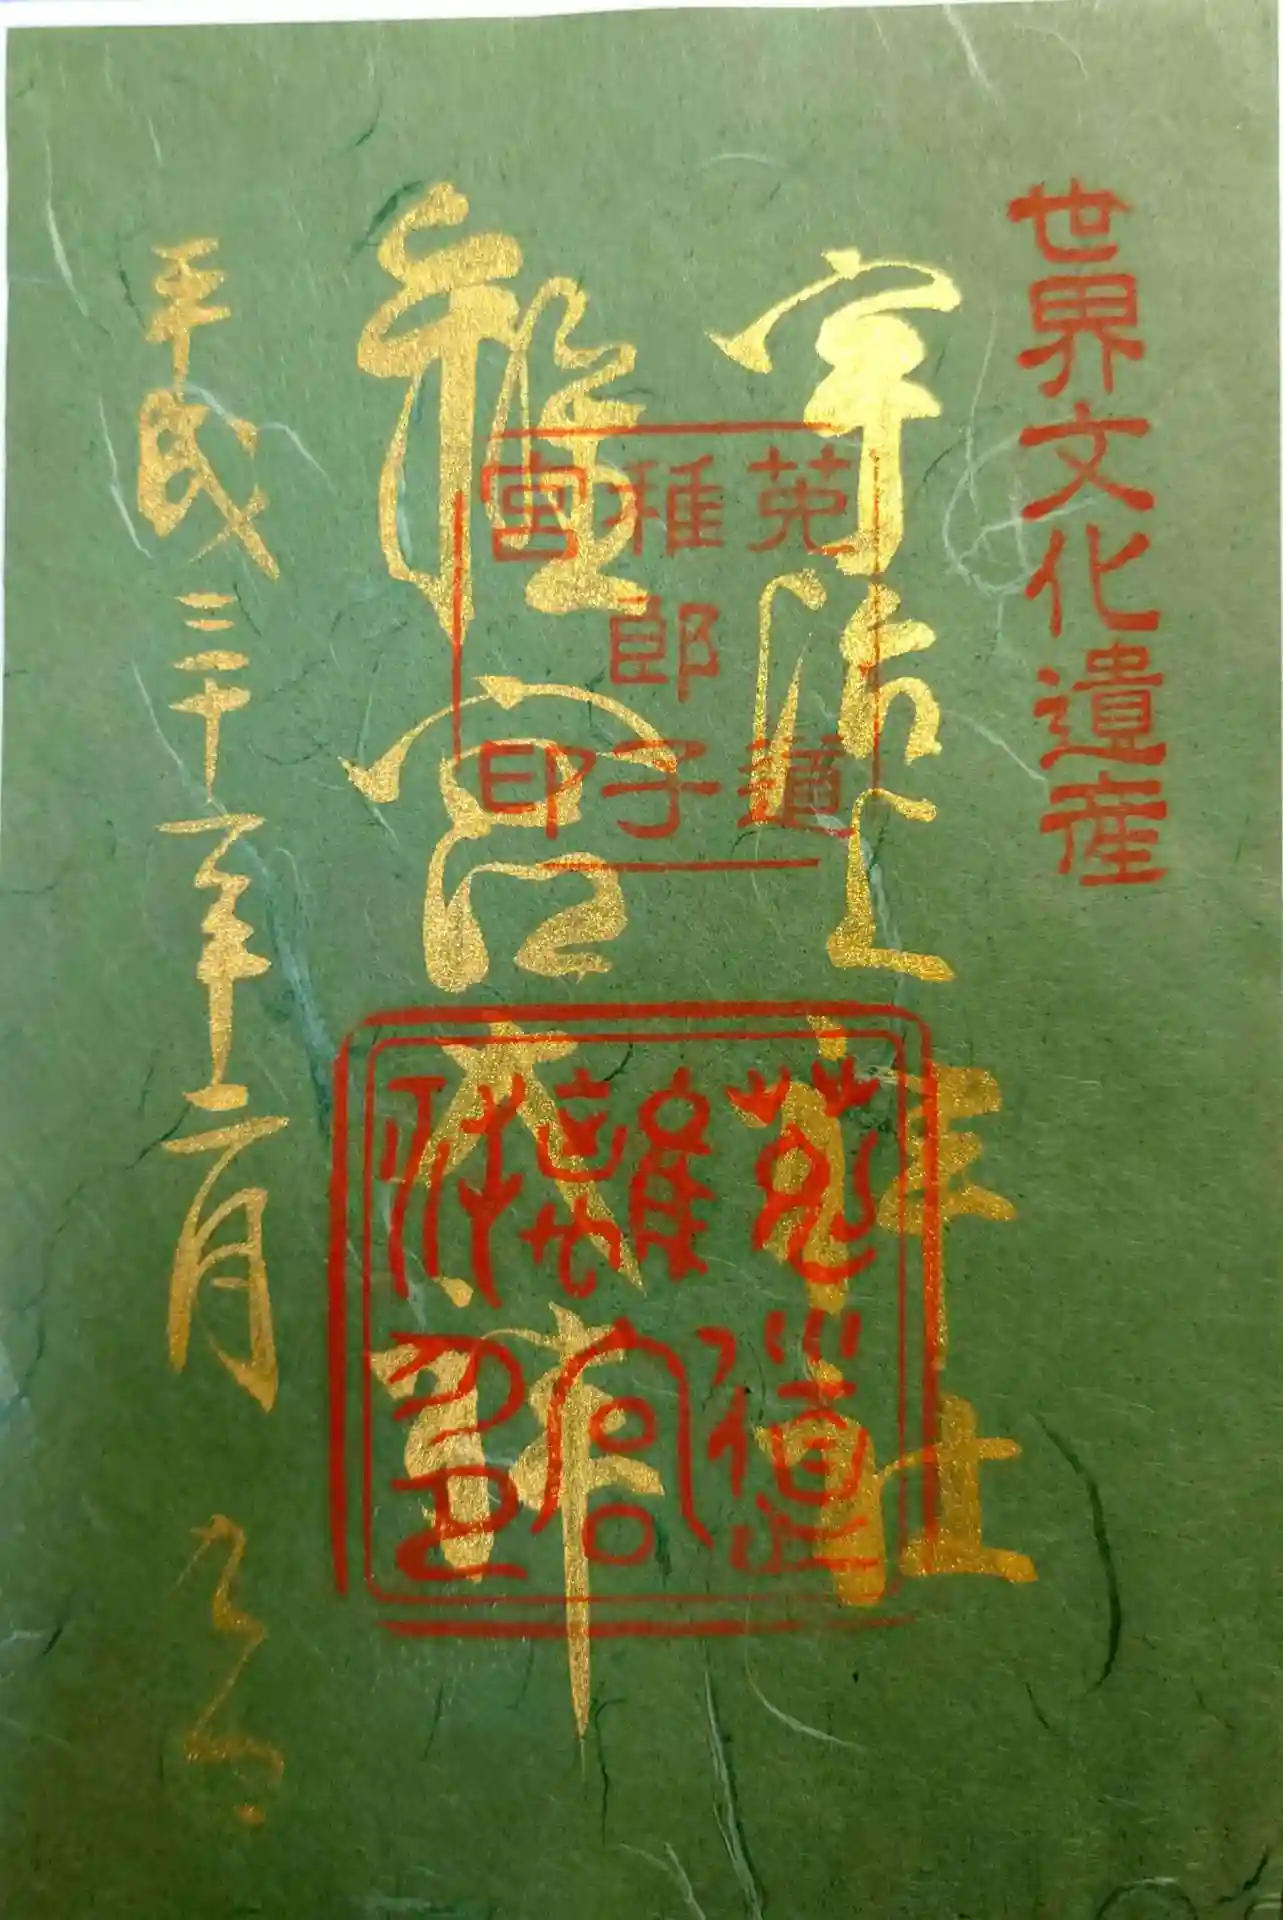 世界文化遺産
宇治上神社
菟道
稚郎子
宮印
離宮大神
菟道
離宮
平成三十一年二月 九日